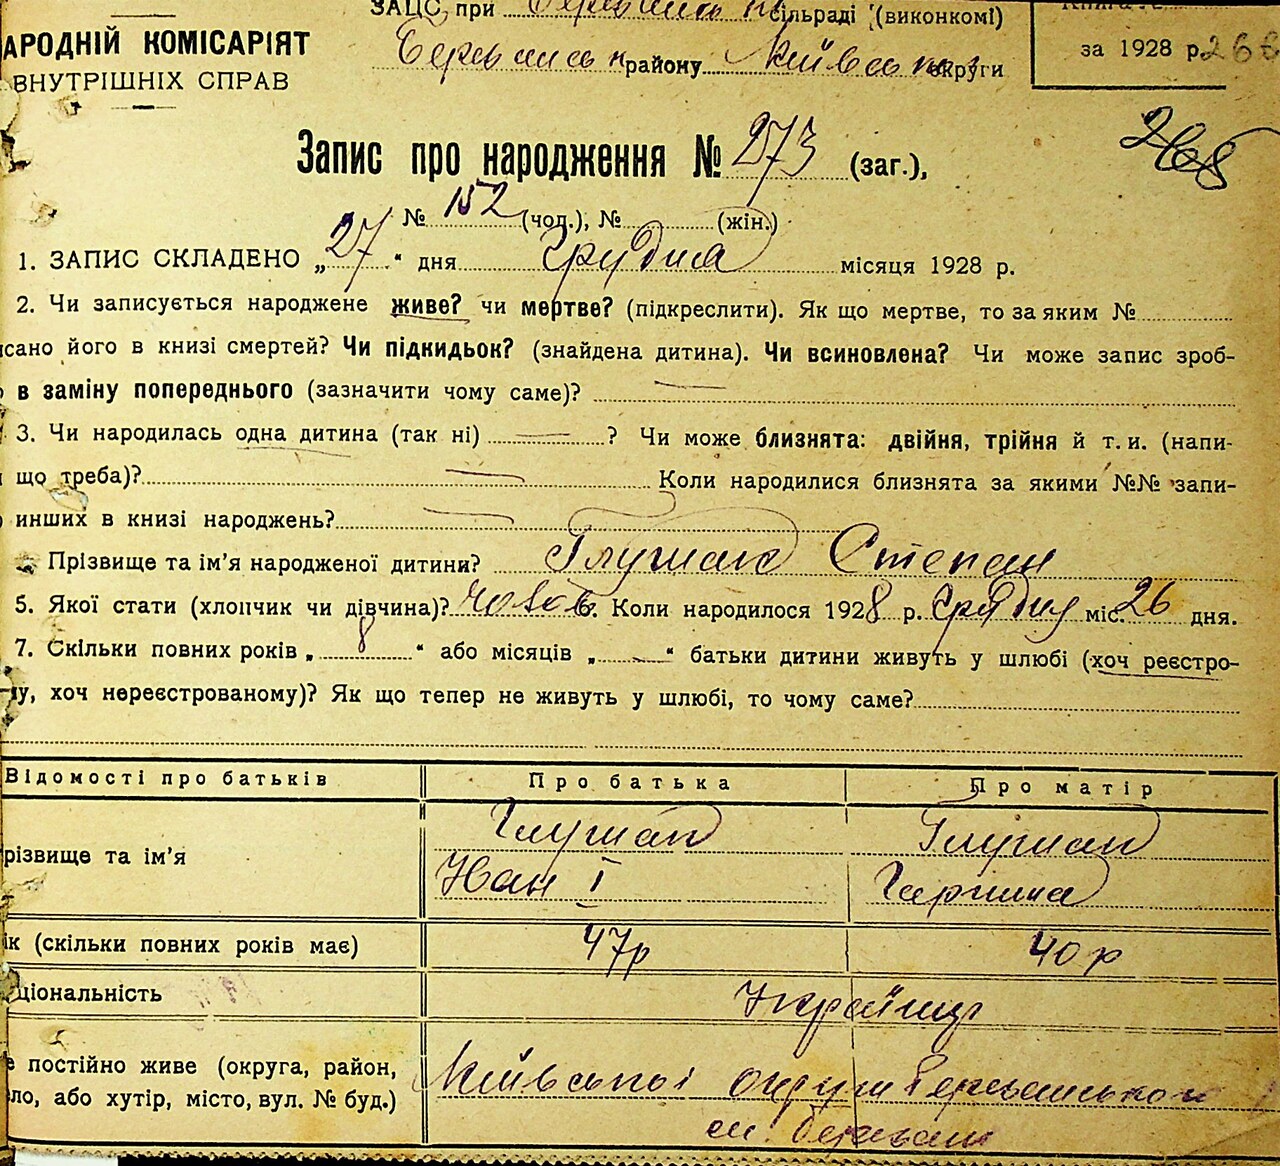 ЗАЦС при сільраді (виконкомі)
району Київської округи
за 1928 р. 268
АРОДНІЙ КОМІСАРІЯТ
ВНУТРІШНІХ СПРАВ
268
Запис про народження № 273 (заг.),
№ 152 (чол.), № (жін.)
1. ЗАПИС СКЛАДЕНО „27“ дня Грудня місяця 1928 р.
2. Чи записується народжене живе? чи мертве? (підкреслити). Як що мертве, то за яким №
сано його в книзі смертей? Чи підкидьок? (знайдена дитина). Чи всиновлена? Чи може запис зроб-
в заміну попереднього (зазначити чому саме)?
3. Чи народилась одна дитина (так ні) ? Чи може близнята: двійня, трійня й т. и. (напи-
що треба)? Коли народилися близнята за якими №№ запи-
инших в книзі народжень?
Прізвище та ім’я народженої дитини? Глушак Степан
5. Якої стати (хлопчик чи дівчина)? чолов 6. Коли народилося 1928 р. Грудня міс. 26 дня.
7. Скільки повних років „ 8 “ або місяців „ “ батьки дитини живуть у шлюбі (хоч реєстро-
у, хоч нереєстрованому)? Як що тепер не живуть у шлюбі, то чому саме?
Відомості про батьків Про батька Про матір
різвище та ім’я Глушак Глушак
Іван І
ік (скільки повних років має) 47р 40 р
ціональність Українці
е постійно живе (округа, район, Київської округи
ло, або хутір, місто, вул. № буд.)